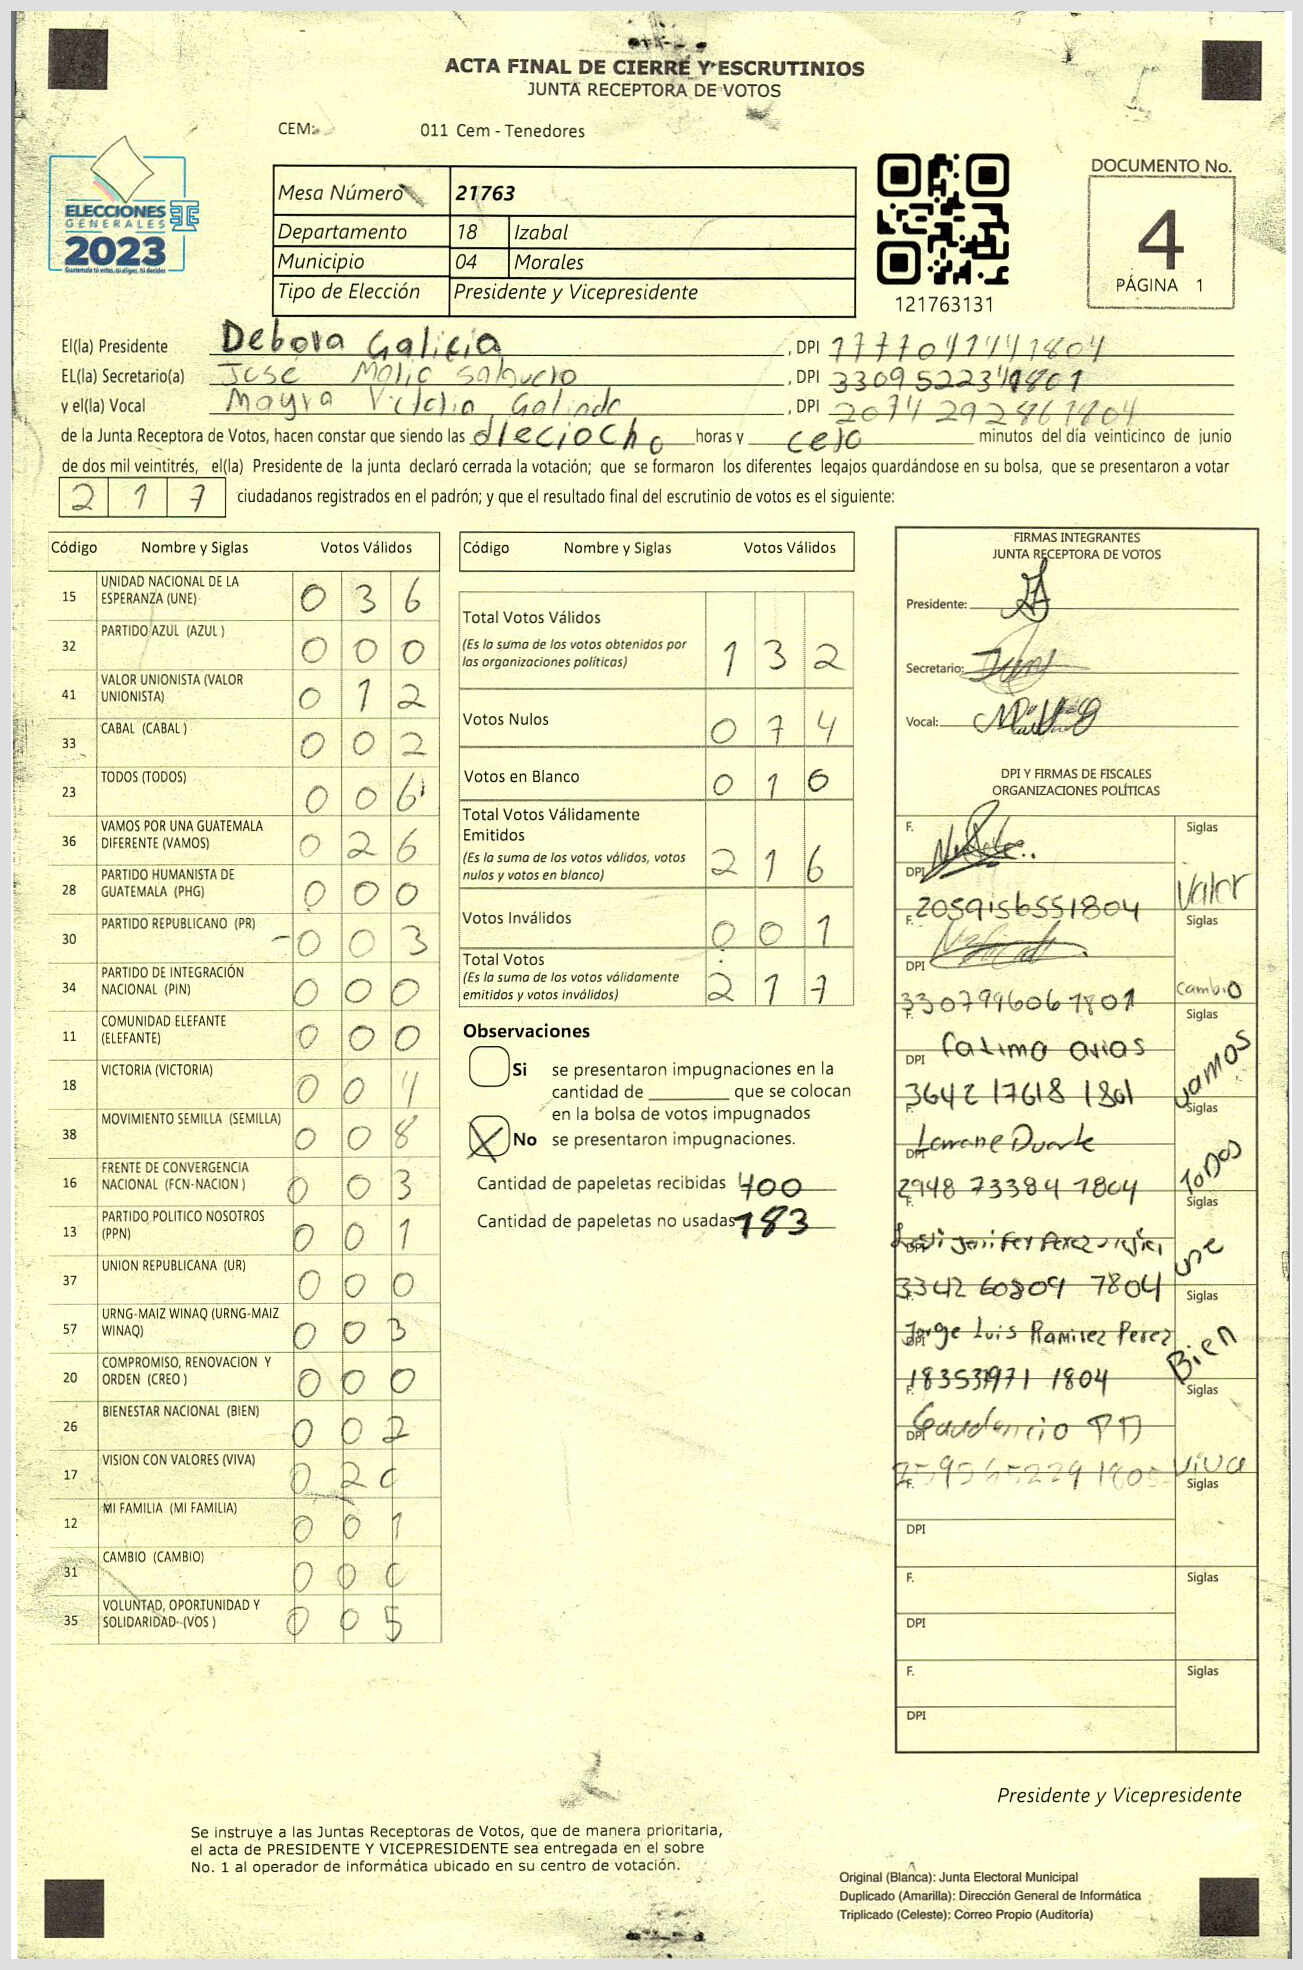 ACTA FINAL DE CIERRE Y ESCRUTINIOS
JUNTA RECEPTORA DE VOTOS
CEM: 011 Cem - Tenedores
ELECCIONES
GENERALES
2023
Guatemala tú votas, tú eliges, tú decides
Mesa Número 21763
Departamento 18 Izabal
Municipio 04 Morales
Tipo de Elección Presidente y Vicepresidente
121763131
DOCUMENTO No.
4
PÁGINA 1
El(la) Presidente Debora Galicia , DPI 1777041441804
EL(la) Secretario(a) José , DPI
y el(la) Vocal Mayra Galindo , DPI 2074 292861804
de la Junta Receptora de Votos, hacen constar que siendo las dieciocho horas y cero minutos del día veinticinco de junio
de dos mil veintitrés, el(la) Presidente de la junta declaró cerrada la votación; que se formaron los diferentes legajos guardándose en su bolsa, que se presentaron a votar
2 1 7 ciudadanos registrados en el padrón; y que el resultado final del escrutinio de votos es el siguiente:
Código Nombre y Siglas Votos Válidos
15 UNIDAD NACIONAL DE LA ESPERANZA (UNE) 0 3 6
32 PARTIDO AZUL (AZUL ) 0 0 0
41 VALOR UNIONISTA (VALOR UNIONISTA) 0 1 2
33 CABAL (CABAL ) 0 0 2
23 TODOS (TODOS) 0 0 6
36 VAMOS POR UNA GUATEMALA DIFERENTE (VAMOS) 0 2 6
28 PARTIDO HUMANISTA DE GUATEMALA (PHG) 0 0 0
30 PARTIDO REPUBLICANO (PR) 0 0 3
34 PARTIDO DE INTEGRACIÓN NACIONAL (PIN) 0 0 0
11 COMUNIDAD ELEFANTE (ELEFANTE) 0 0 0
18 VICTORIA (VICTORIA) 0 0 4
38 MOVIMIENTO SEMILLA (SEMILLA) 0 0 8
16 FRENTE DE CONVERGENCIA NACIONAL (FCN-NACION ) 0 0 3
13 PARTIDO POLITICO NOSOTROS (PPN) 0 0 1
37 UNION REPUBLICANA (UR) 0 0 0
57 URNG-MAIZ WINAQ (URNG-MAIZ WINAQ) 0 0 3
20 COMPROMISO, RENOVACION Y ORDEN (CREO ) 0 0 0
26 BIENESTAR NACIONAL (BIEN) 0 0 2
17 VISION CON VALORES (VIVA) 0 2 0
12 MI FAMILIA (MI FAMILIA) 0 0 1
31 CAMBIO (CAMBIO) 0 0 0
35 VOLUNTAD, OPORTUNIDAD Y SOLIDARIDAD (VOS ) 0 0 5
Código Nombre y Siglas Votos Válidos
Total Votos Válidos 1 3 2
(Es la suma de los votos obtenidos por
las organizaciones políticas)
Votos Nulos 0 7 4
Votos en Blanco 0 1 0
Total Votos Válidamente
Emitidos 2 1 6
(Es la suma de los votos válidos, votos
nulos y votos en blanco)
Votos Inválidos 0 0 1
Total Votos 2 1 7
(Es la suma de los votos válidamente
emitidos y votos inválidos)
Observaciones
Si se presentaron impugnaciones en la
cantidad de ________ que se colocan
en la bolsa de votos impugnados
X No se presentaron impugnaciones.
Cantidad de papeletas recibidas 400
Cantidad de papeletas no usadas 183
FIRMAS INTEGRANTES
JUNTA RECEPTORA DE VOTOS
Presidente:
Secretario:
Vocal:
DPI Y FIRMAS DE FISCALES
ORGANIZACIONES POLÍTICAS
F. Siglas
DPI 2059156551804 Valor
F. Siglas
DPI 3307996061801 cambio
F. Siglas
DPI Fatima arias
3642 17618 1801 vamos
F. Siglas
DPI Duarte
2948 73384 1804 TODOS
F. Siglas
DPI Jenifer Perez
3342 60809 1804 une
F. Siglas
DPI Jorge Luis Ramirez Perez
183531971 1804 Bien
F. Siglas
DPI Gaudencio
viva
F. Siglas
DPI
F. Siglas
DPI
F. Siglas
DPI
Presidente y Vicepresidente
Se instruye a las Juntas Receptoras de Votos, que de manera prioritaria,
el acta de PRESIDENTE Y VICEPRESIDENTE sea entregada en el sobre
No. 1 al operador de informática ubicado en su centro de votación.
Original (Blanca): Junta Electoral Municipal
Duplicado (Amarilla): Dirección General de Informática
Triplicado (Celeste): Correo Propio (Auditoría)